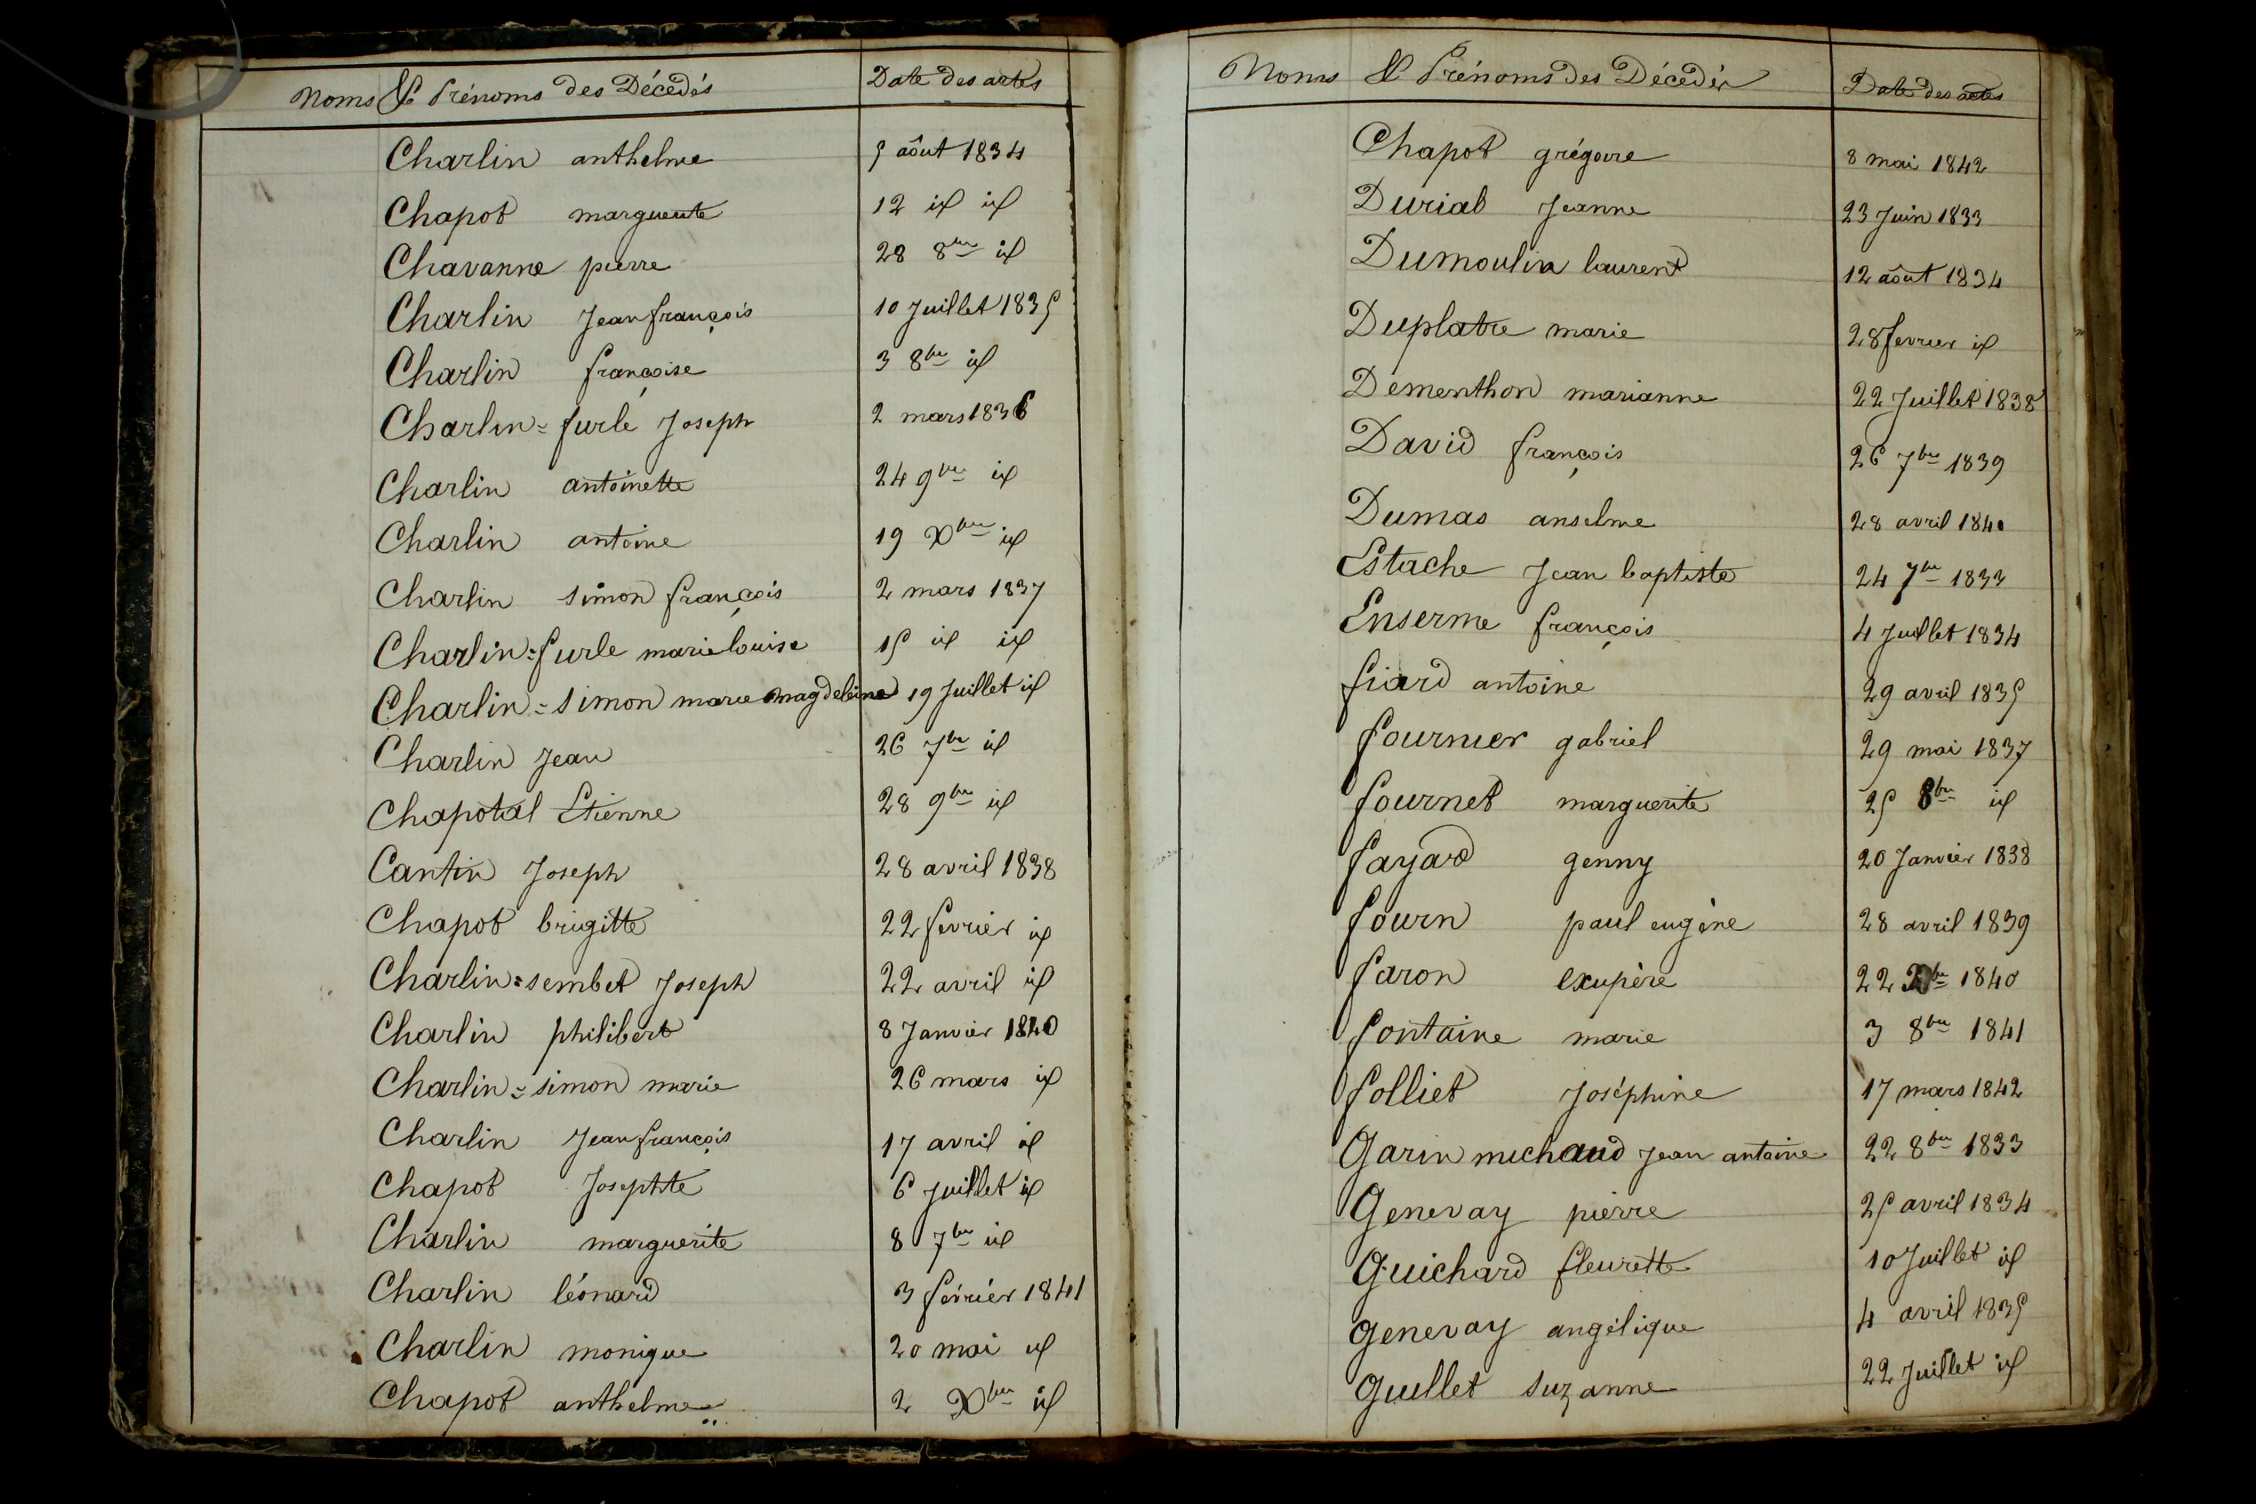 Noms & Prénoms des Décédés Date des actes
Charlin anthelme 5 aôut 1834
Chapot marguerite 12 id id
Chavanne pierre 28 8bre id
Charlin Jean françois 10 Juillet 1835
Charlin françoise 3 8bre id
Charlin=furlé Joseph 2 mars 1836
Charlin antoinette 24 9bre id
Charlin antoine 19 Xbre id
Charlin simon françois 2 mars 1837
Charlin=furle marie louise 15 id id
Charlin=simon marie magdeleine 19 Juillet id
Charlin Jean 26 7bre id
Chapotal Etienne 28 9bre id
Cantin Joseph 28 avril 1838
Chapot brigitte 22 fevrier id
Charlin=sembet Joseph 22 avril id
Charlin philibert 8 Janvier 1840
Charlin=simon marie 26 mars id
Charlin Jean françois 17 avril id
Chapot Josephte 6 Juillet id
Charlin marguerite 8 7bre id
Charlin léonard 3 février 1841
Charlin monique 20 mai id
Chapot anthelme 2 Xbre id
Noms & Prénoms des Décédés Date des actes
Chapot grégoire 8 mai 1842
Durial Jeanne 23 Juin 1833
Dumoulin laurent 12 aôut 1834
Duplatre marie 28 fevrier id
Dementhon marianne 22 Juillet 1838
David françois 26 7bre 1839
Dumas anselme 28 avril 1840
Estache Jean baptiste 24 7bre 1833
Enserme françois 4 Juillet 1834
fiard antoine 29 avril 1835
fournier gabriel 29 mai 1837
fournet marguerite 25 8bre id
fayard genny 20 Janvier 1838
fourn paul eugène 28 avril 1839
faron exupère 22 Xbre 1840
fontaine marie 3 8bre 1841
folliet Joséphine 17 mars 1842
Garin michaud Jean antoine 22 8bre 1833
Genevay pierre 25 avril 1834
Guichard fleurette 10 Juillet id
Genevay angélique 4 avril 1835
Guillet suzanne 22 Juillet id